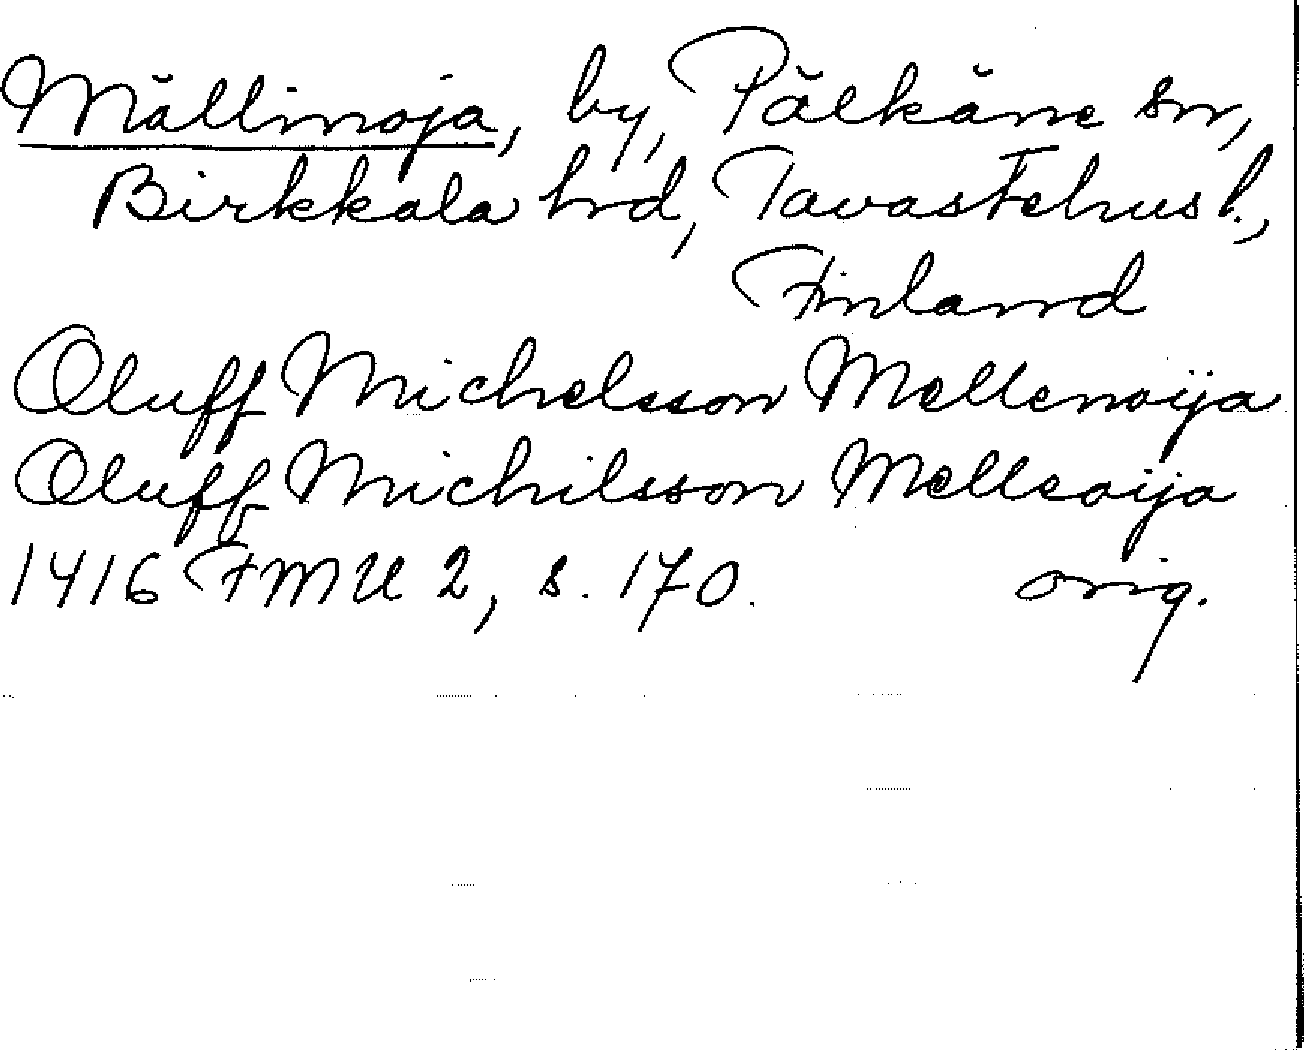 Mällinoja, by, Pälkäne sn,
Birkkala hrd, Tavastehus l.,
Finland
Oluff Michelsson Mellenoija
Oluff Michilsson Melleoija
1416 FMU 2, s. 170. orig.